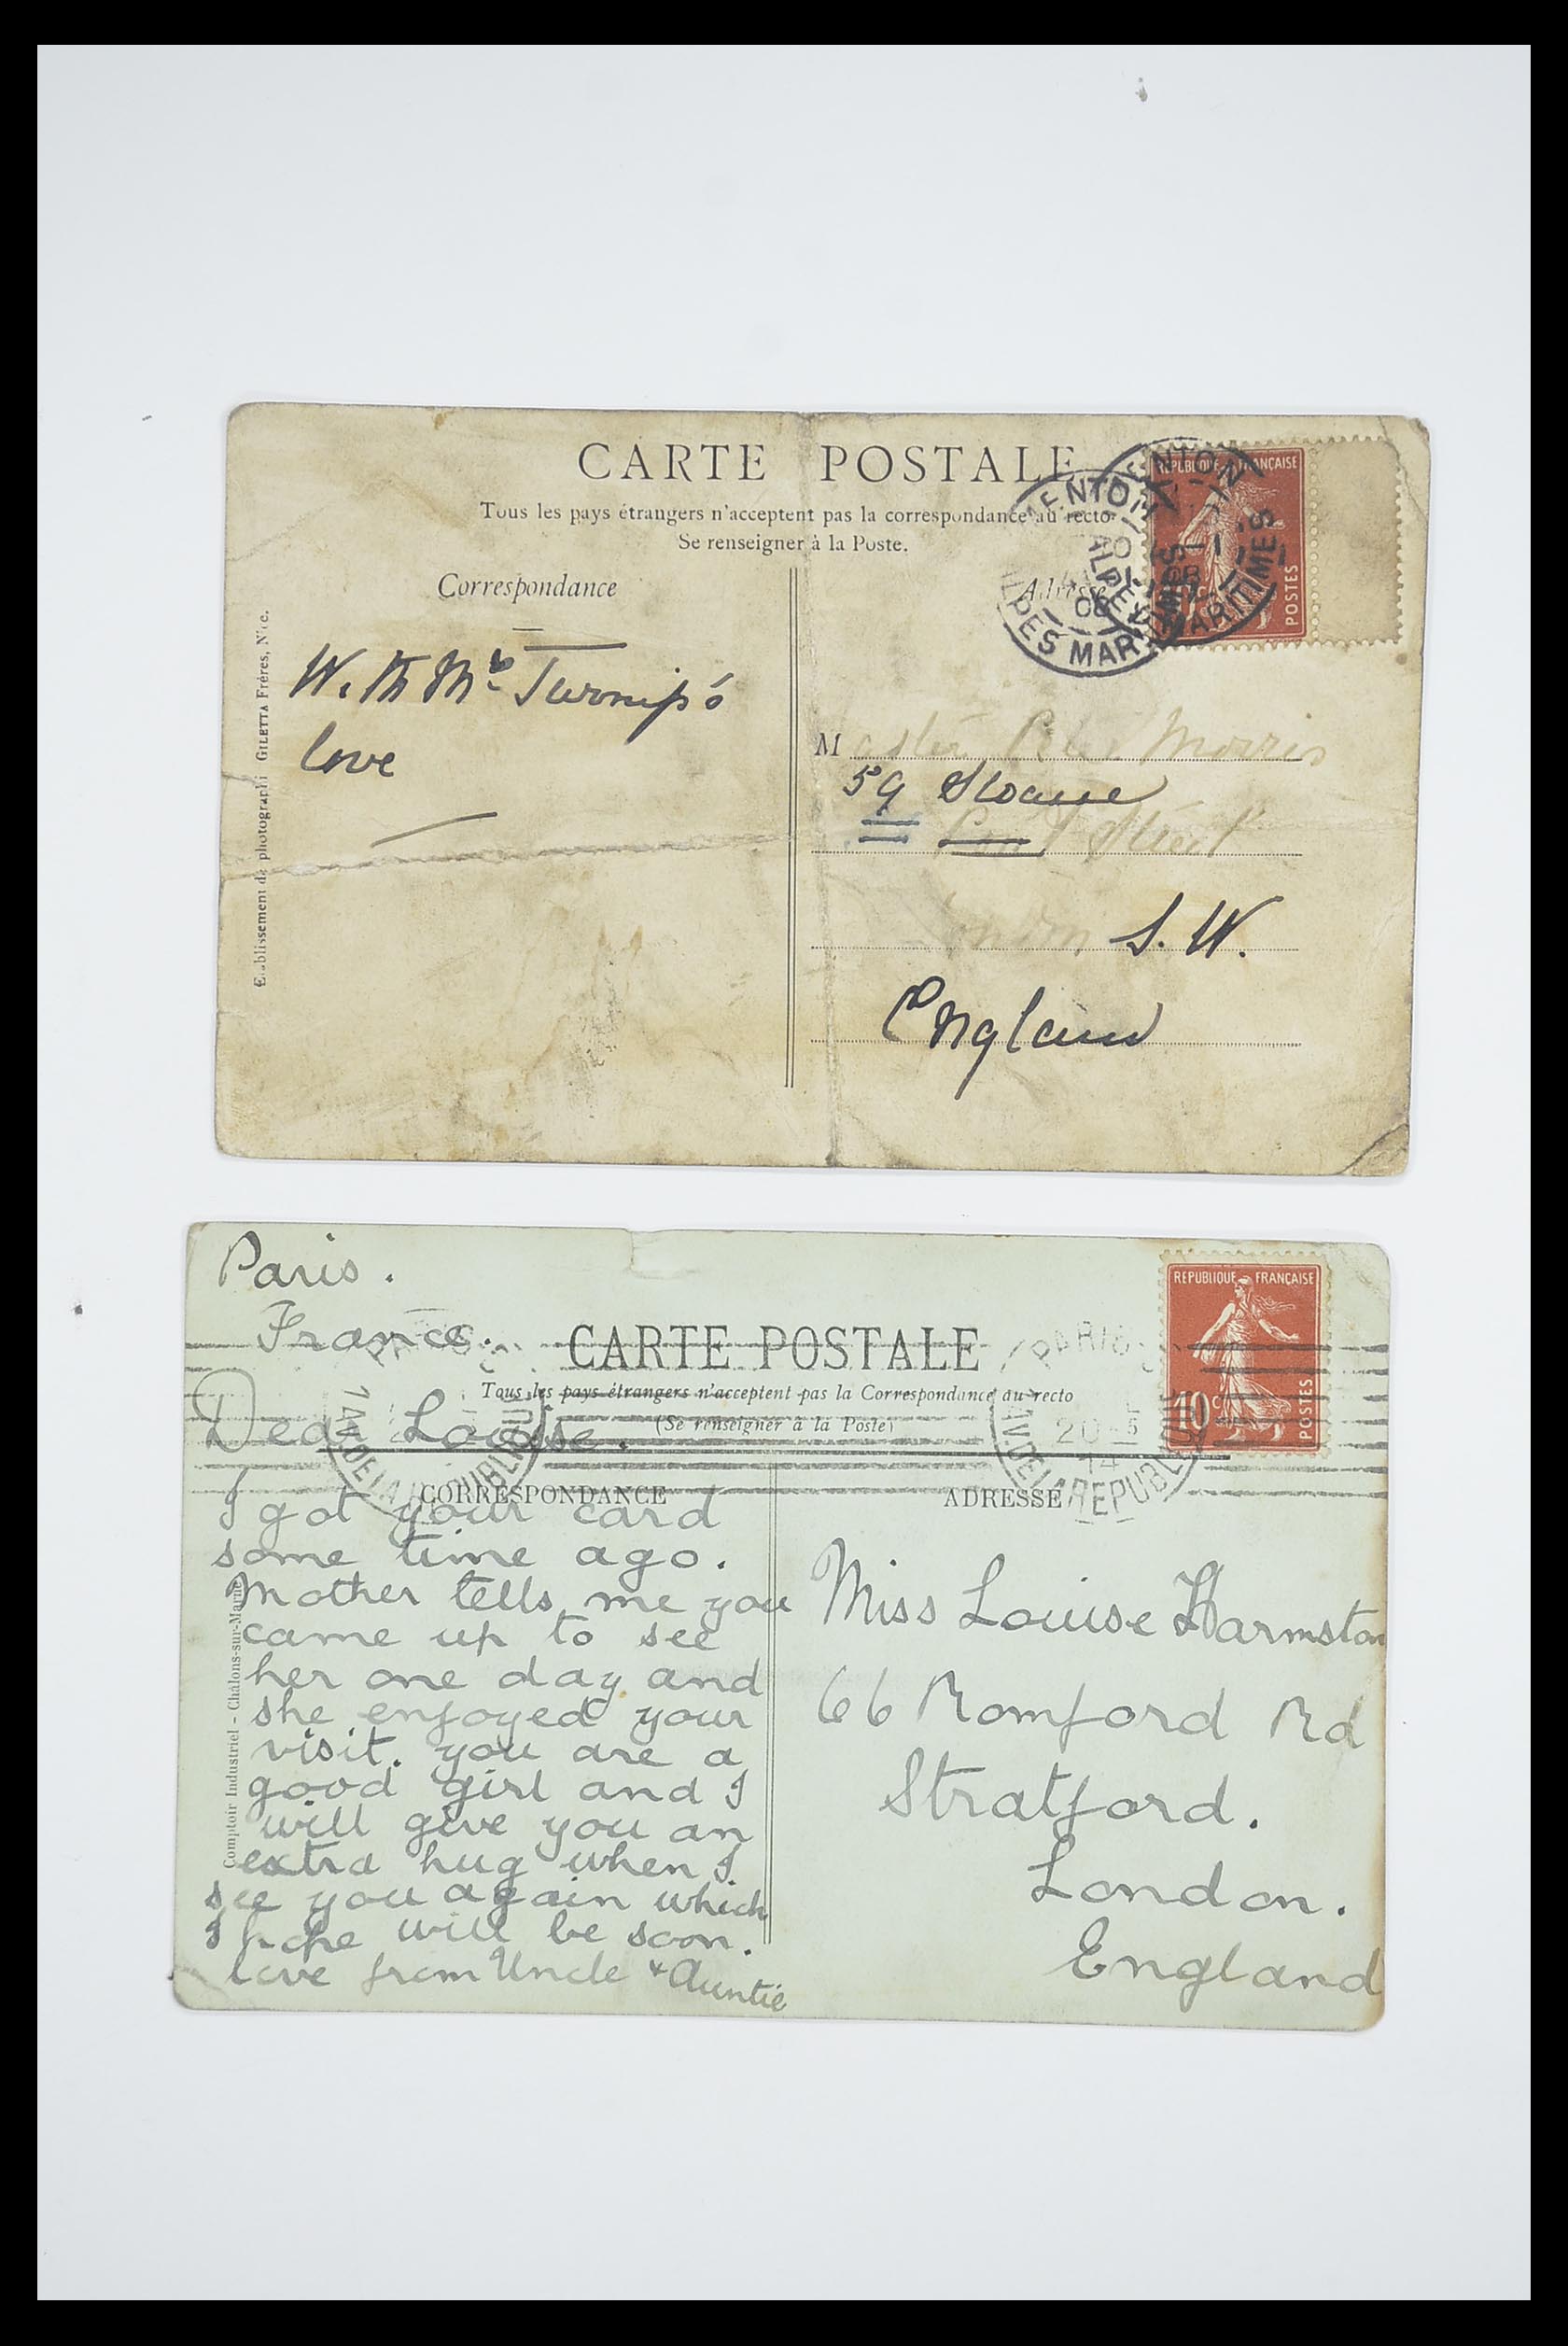 CARTE POSTALE
Tous les pays étrangers n'acceptent pas la correspondance au recto
Se renseigner à la Poste.
Correspondance
Adresse
MENTON
ALPES MARITIMES
MENTON
ALPES MAR
08
REPUBLIQUE FRANÇAISE
POSTES
GILETTA Frères, Nice.
With Mr Turnip's
love
Master Peter Morris
59 Sloane
Street
London S.W.
England
Paris.
France.
CARTE POSTALE
Tous les pays étrangers n'acceptent pas la Correspondance au recto
(Se renseigner à la Poste)
REPUBLIQUE FRANÇAISE
10 c
POSTES
PARIS
AV. DE LA REPUBLIQUE
20 - 5
14
CORRESPONDANCE
ADRESSE
Comptoir Industriel - Châlons-sur-Marne
Dear Louise.
I got your card
some time ago.
Mother tells me you
came up to see
her one day and
she enjoyed your
visit. you are a
good girl and I
will give you an
extra hug when I
see you again which
I hope will be soon.
love from Uncle & Auntie
Miss Louise Harmston
66 Romford Rd
Stratford.
London.
England